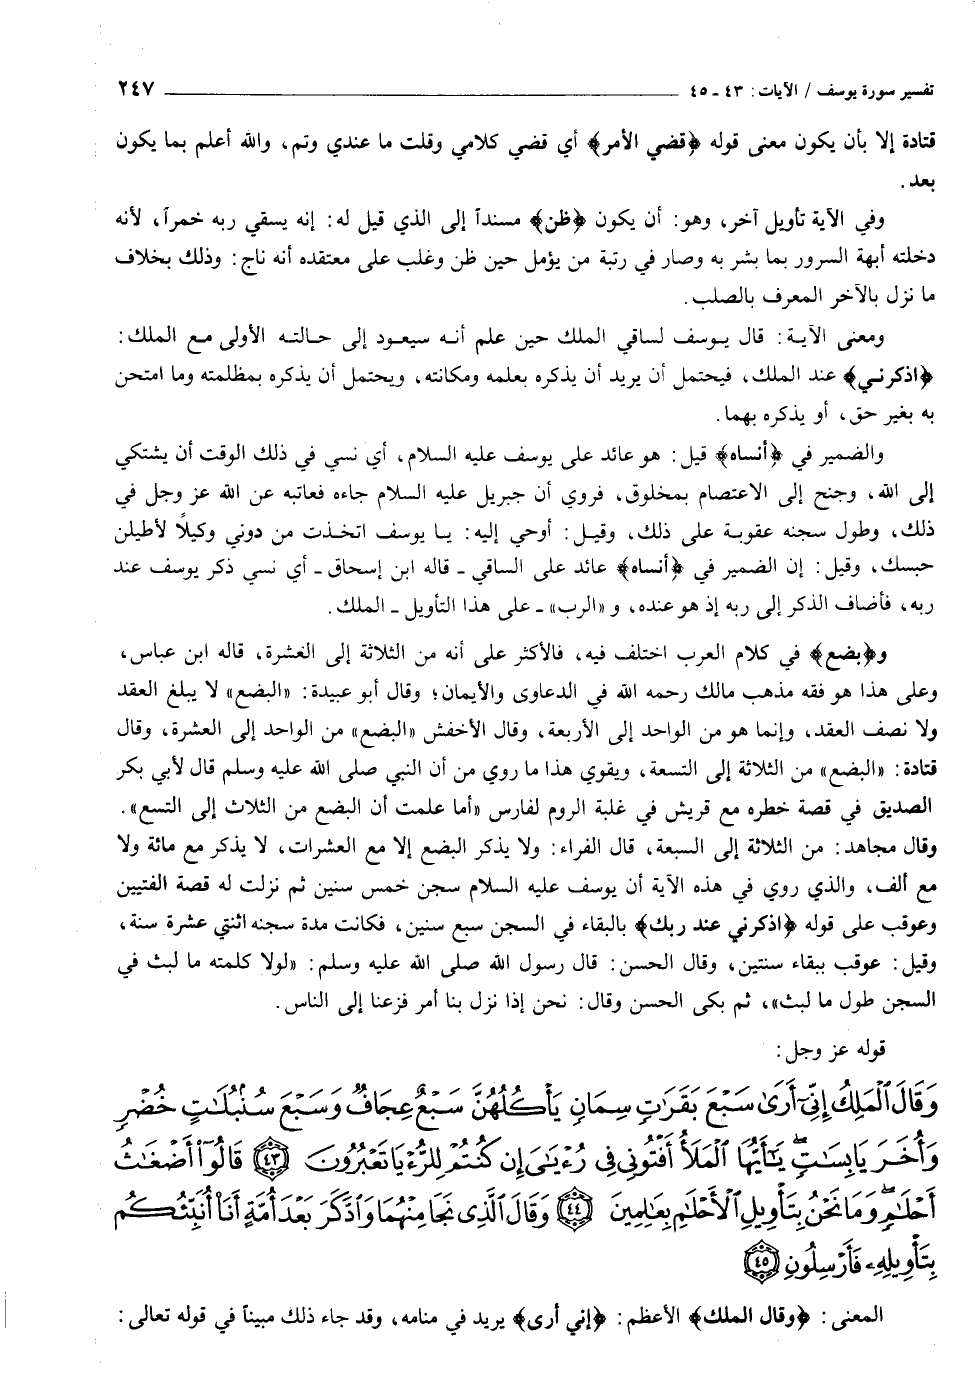 تفسير سورة يوسف / الآيات : ٤٣ ـ ٤٥ ٢٤٧
قتادة إلا بأن يكون معنى قوله ﴿قضي الأمر﴾ أي قضي كلامي وقلت ما عندي وتم، والله أعلم بما يكون
بعد .
وفي الآية تأويل آخر، وهو: أن يكون ﴿ظن﴾ مسنداً إلى الذي قيل له: إنه يسقي ربه خمراً، لأنه
دخلته أبهة السرور بما بشر به وصار في رتبة من يؤمل حين ظن وغلب على معتقده أنه ناج: وذلك بخلاف
ما نزل بالآخر المعرف بالصلب.
ومعنى الآية: قال يوسف لساقي الملك حين علم أنه سيعود إلى حالته الأولى مع الملك:
﴿اذكرني﴾ عند الملك، فيحتمل أن يريد أن يذكره بعلمه ومكانته، ويحتمل أن يذكره بمظلمته وما امتحن
به بغير حق، أو يذكره بهما.
والضمير في ﴿أنساه﴾ قيل: هو عائد على يوسف عليه السلام، أي نسي في ذلك الوقت أن يشتكي
إلى الله، وجنح إلى الاعتصام بمخلوق، فروي أن جبريل عليه السلام جاءه فعاتبه عن الله عز وجل في
ذلك، وطول سجنه عقوبة على ذلك، وقيل: أوحي إليه: يا يوسف اتخذت من دوني وكيلاً لأطيلن
حبسك، وقيل: إن الضمير في ﴿أنساه﴾ عائد على الساقي ـ قاله ابن إسحاق ـ أي نسي ذكر يوسف عند
ربه، فأضاف الذكر إلى ربه إذ هو عنده، و «الرب» ـ على هذا التأويل ـ الملك.
و﴿بضع﴾ في كلام العرب اختلف فيه، فالأكثر على أنه من الثلاثة إلى العشرة، قاله ابن عباس،
وعلى هذا هو فقه مذهب مالك رحمه الله في الدعاوى والأيمان؛ وقال أبو عبيدة: «البضع» لا يبلغ العقد
ولا نصف العقد، وإنما هو من الواحد إلى الأربعة، وقال الأخفش «البضع» من الواحد إلى العشرة، وقال
قتادة: «البضع» من الثلاثة إلى التسعة، ويقوي هذا ما روي من أن النبي صلى الله عليه وسلم قال لأبي بكر
الصديق في قصة خطره مع قريش في غلبة الروم لفارس «أما علمت أن البضع من الثلاث إلى التسع».
وقال مجاهد: من الثلاثة إلى السبعة، قال الفراء: ولا يذكر البضع إلا مع العشرات، لا يذكر مع مائة ولا
مع ألف، والذي روي في هذه الآية أن يوسف عليه السلام سجن خمس سنين ثم نزلت له قصة الفتيين
وعوقب على قوله ﴿اذكرني عند ربك﴾ بالبقاء في السجن سبع سنين، فكانت مدة سجنه اثنتي عشرة سنة،
وقيل: عوقب ببقاء سنتين، وقال الحسن: قال رسول الله صلى الله عليه وسلم: «لولا كلمته ما لبث في
السجن طول ما لبث»، ثم بكى الحسن وقال: نحن إذا نزل بنا أمر فزعنا إلى الناس.
قوله عز وجل:
وَقَالَ ٱلْمَلِكُ إِنِّىٓ أَرَىٰ سَبْعَ بَقَرَٰتٍ سِمَانٍ يَأْكُلُهُنَّ سَبْعٌ عِجَافٌ وَسَبْعَ سُنۢبُلَٰتٍ خُضْرٍ
وَأُخَرَ يَابِسَٰتٍ ۖ يَٰٓأَيُّهَا ٱلْمَلَأُ أَفْتُونِى فِى رُءْيَٰىَ إِن كُنتُمْ لِلرُّءْيَا تَعْبُرُونَ ﴿٤٣﴾ قَالُوٓا۟ أَضْغَٰثُ
أَحْلَٰمٍ ۖ وَمَا نَحْنُ بِتَأْوِيلِ ٱلْأَحْلَٰمِ بِعَٰلِمِينَ ﴿٤٤﴾ وَقَالَ ٱلَّذِى نَجَا مِنْهُمَا وَٱدَّكَرَ بَعْدَ أُمَّةٍ أَنَا۠ أُنَبِّئُكُم
بِتَأْوِيلِهِۦ فَأَرْسِلُونِ ﴿٤٥﴾
المعنى: ﴿وقال الملك﴾ الأعظم: ﴿إني أرى﴾ يريد في منامه، وقد جاء ذلك مبيناً في قوله تعالى: